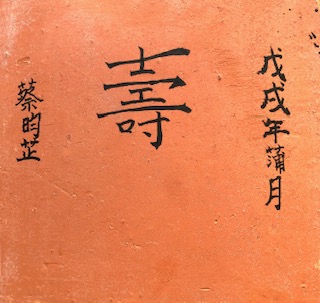 戊戌年蒲月
壽
蔡昀芷